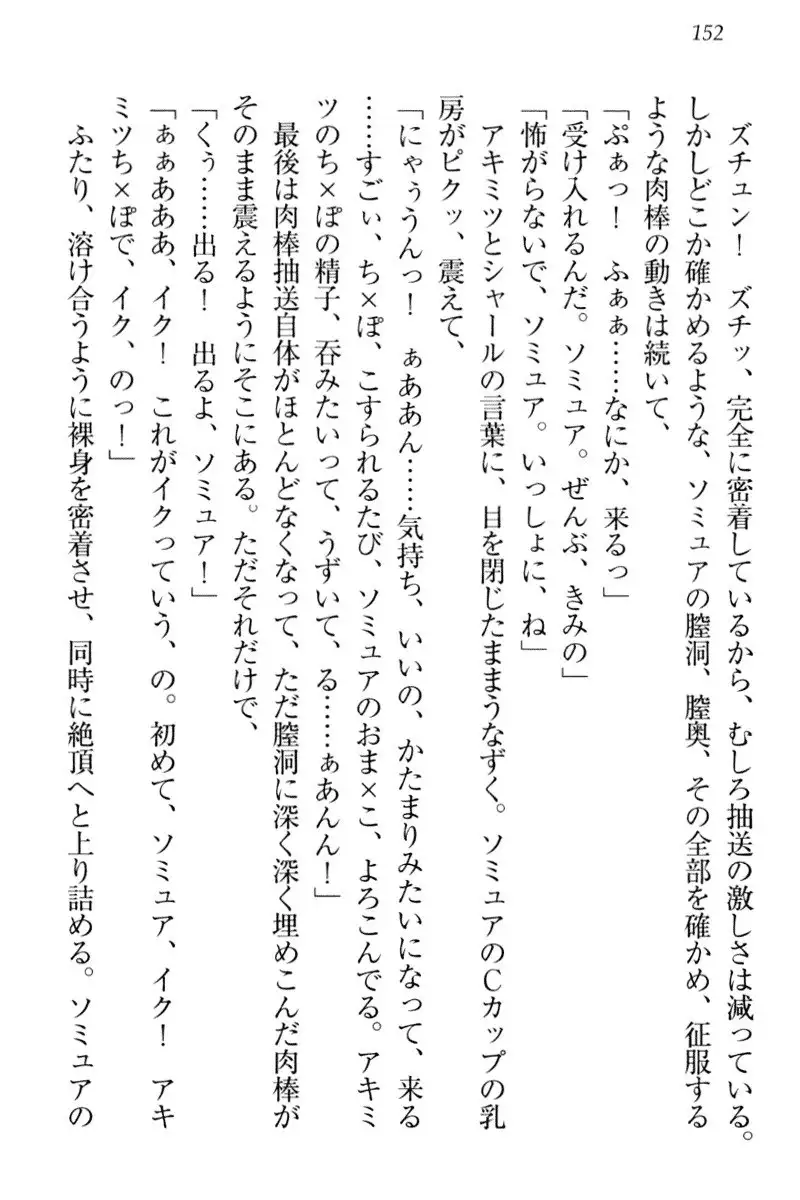 152
ズチュン！　ズチッ、完全に密着しているから、むしろ抽送の激しさは減っている。
しかしどこか確かめるような、ソミュアの膣洞、膣奥、その全部を確かめ、征服する
ような肉棒の動きは続いて、
「ぷぁっ！　ふぁぁ……なにか、来るっ」
「受け入れるんだ。ソミュア。ぜんぶ、きみの」
「怖がらないで、ソミュア。いっしょに、ね」
アキミツとシャールの言葉に、目を閉じたままうなずく。ソミュアのＣカップの乳
房がピクッ、震えて、
「にゃぅうんっ！　ぁああん……気持ち、いいの、かたまりみたいになって、来る
……すごぃ、ち×ぽ、こすられるたび、ソミュアのおま×こ、よろこんでる。アキミ
ツのち×ぽの精子、呑みたいって、うずいて、る……ぁあんん！」
最後は肉棒抽送自体がほとんどなくなって、ただ膣洞に深く深く埋めこんだ肉棒が
そのまま震えるようにそこにある。ただそれだけで、
「くぅ……出る！　出るよ、ソミュア！」
「ぁぁあああ、イク！　これがイクっていう、の。初めて、ソミュア、イク！　アキ
ミツち×ぽで、イク、のっ！」
ふたり、溶け合うように裸身を密着させ、同時に絶頂へと上り詰める。ソミュアの